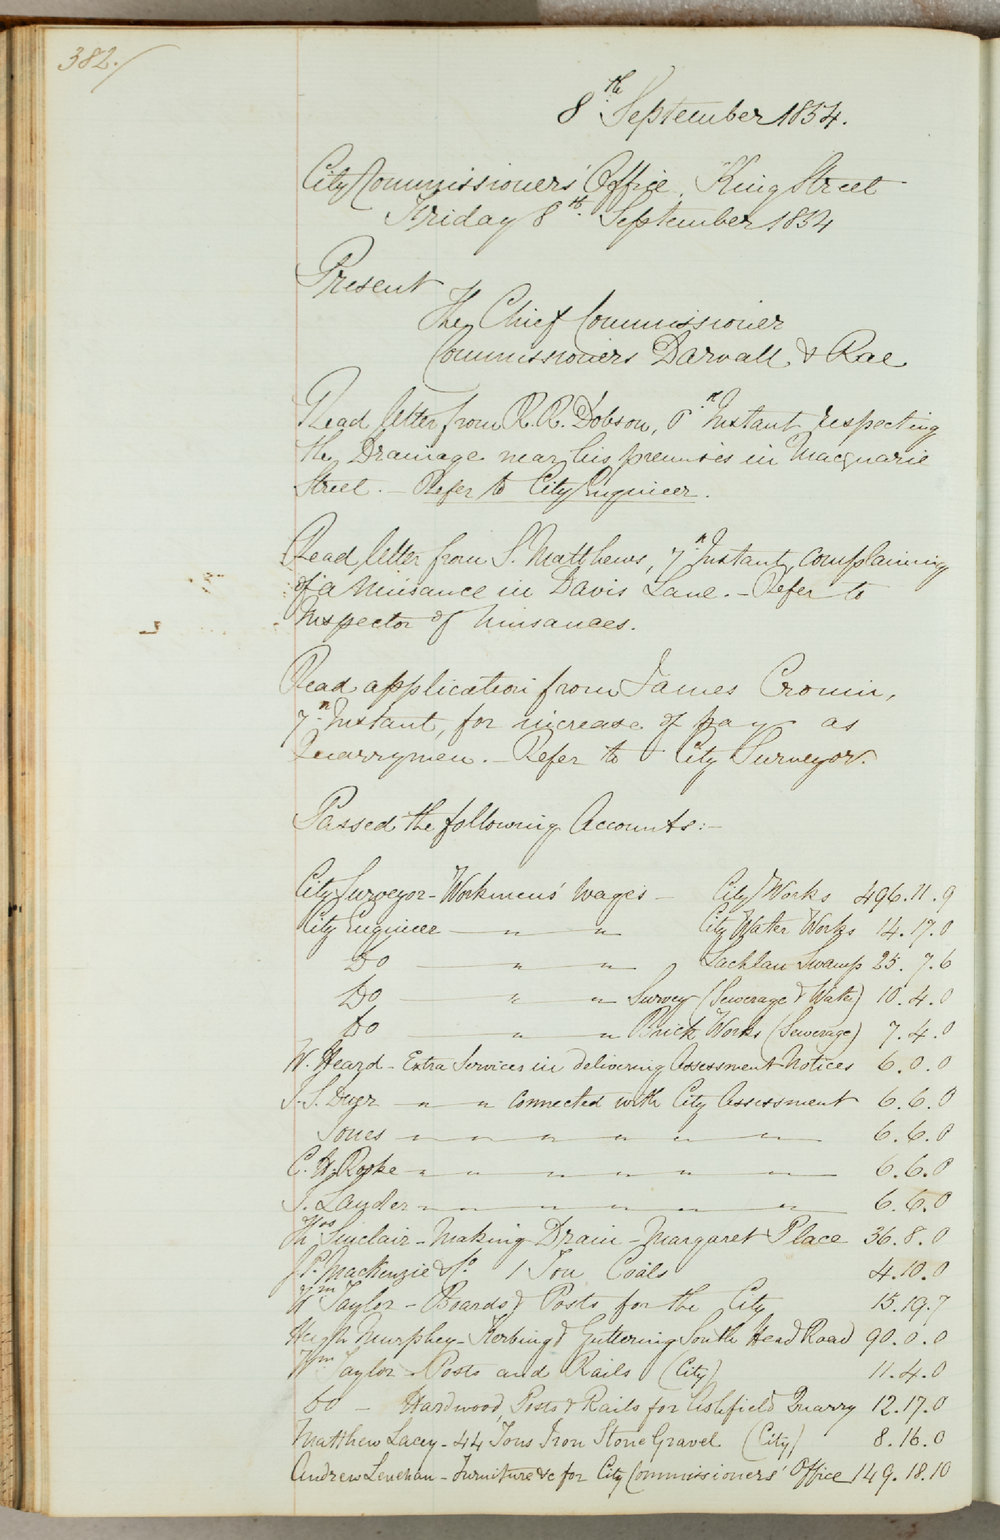 382./
8th September 1854.
City Commissioners' Office, King Street
Friday 8th September 1854
Present
The Chief Commissioner
Commissioners Darvall & Rae
Read letter from R. R. Dobson, 6th Instant respecting
the Drainage near his premises in Macquarie
Street. - Refer to City Engineer.
Read letter from S. Matthews, 7th Instant, complaining
of a Nuisance in Davis Lane. - Refer to
Inspector of Nuisances.
Read application from James Cronin,
7th Instant, for increase of pay as
Quarrymen. - Refer to City Surveyor.
Passed the following Accounts:-
City Surveyor - Workmens' Wages - City Works 496.11.9
City Engineer — " — " City Water Works 14.17.0
Do — " — " Lachlan Swamp 25.7.6
Do — " — " Survey (Sewerage & Water) 10.4.0
Do — " — " Brick Works (Sewerage) 7.4.0
W. Heard - Extra Services in delivering Assessment Notices 6.0.0
J. S. Dyer — " — " connected with City Assessment 6.6.0
Jones — " — " — " — " — " — " — 6.6.0
C. H. Rooke — " — " — " — " — " — " — 6.6.0
J. Lauder — " — " — " — " — " — " — 6.6.0
Thos Sinclair - Making Drain - Margaret Place 36.8.0
P. Mackenzie & Co 1 Ton Coals 4.10.0
Wm Taylor - Boards & Posts for the City 15.19.7
Hugh Murphey - Kerbing & Guttering South Head Road 90.0.0
Wm Taylor - Posts and Rails (City) 11.4.0
Do - Hardwood, Posts & Rails for Ashfield Quarry 12.17.0
Matthew Lacey - 44 Tons Iron Stone Gravel (City) 8.16.0
Andrew Lenehan - Furniture &c for City Commissioners' Office 149.18.10